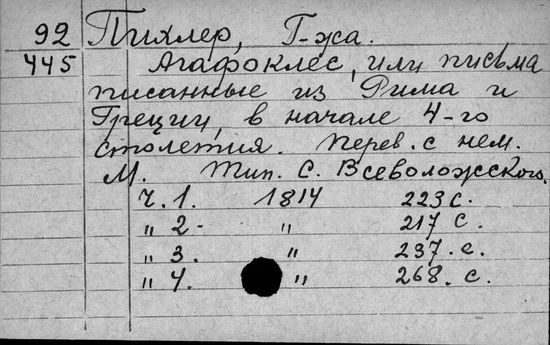 92 Пихлер, Г-жа.
445 Агафоклес, или письма
писанные из Рима и
Греции, в начале 4-го
столетия. Перев. с нем.
М. Тип. С. Всеволожского.
Ч. 1. 1814 223 с.
„ 2. „ 217 с.
„ 3. „ 237. с.
„ 4. „ 268. с.